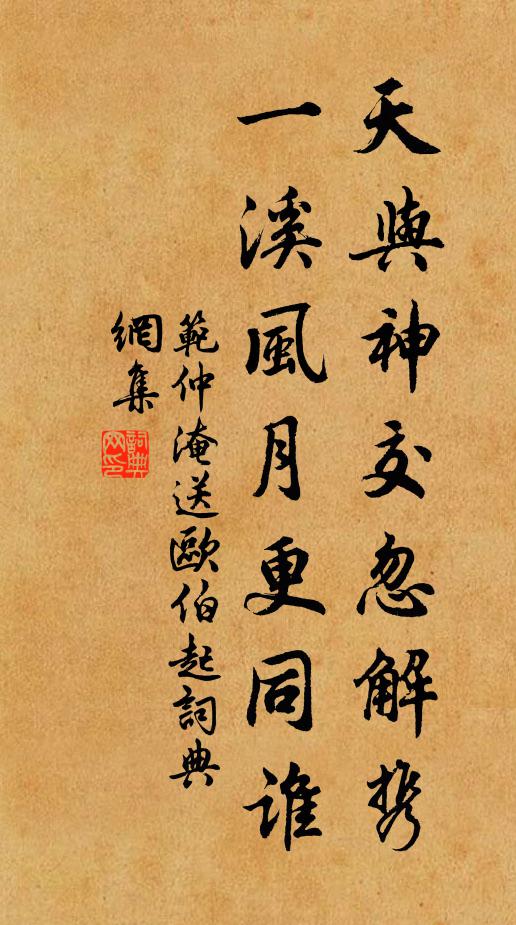 天與神交忽解携
一溪風月更同誰
範仲淹送歐伯起詞典
網集
詞典
网印